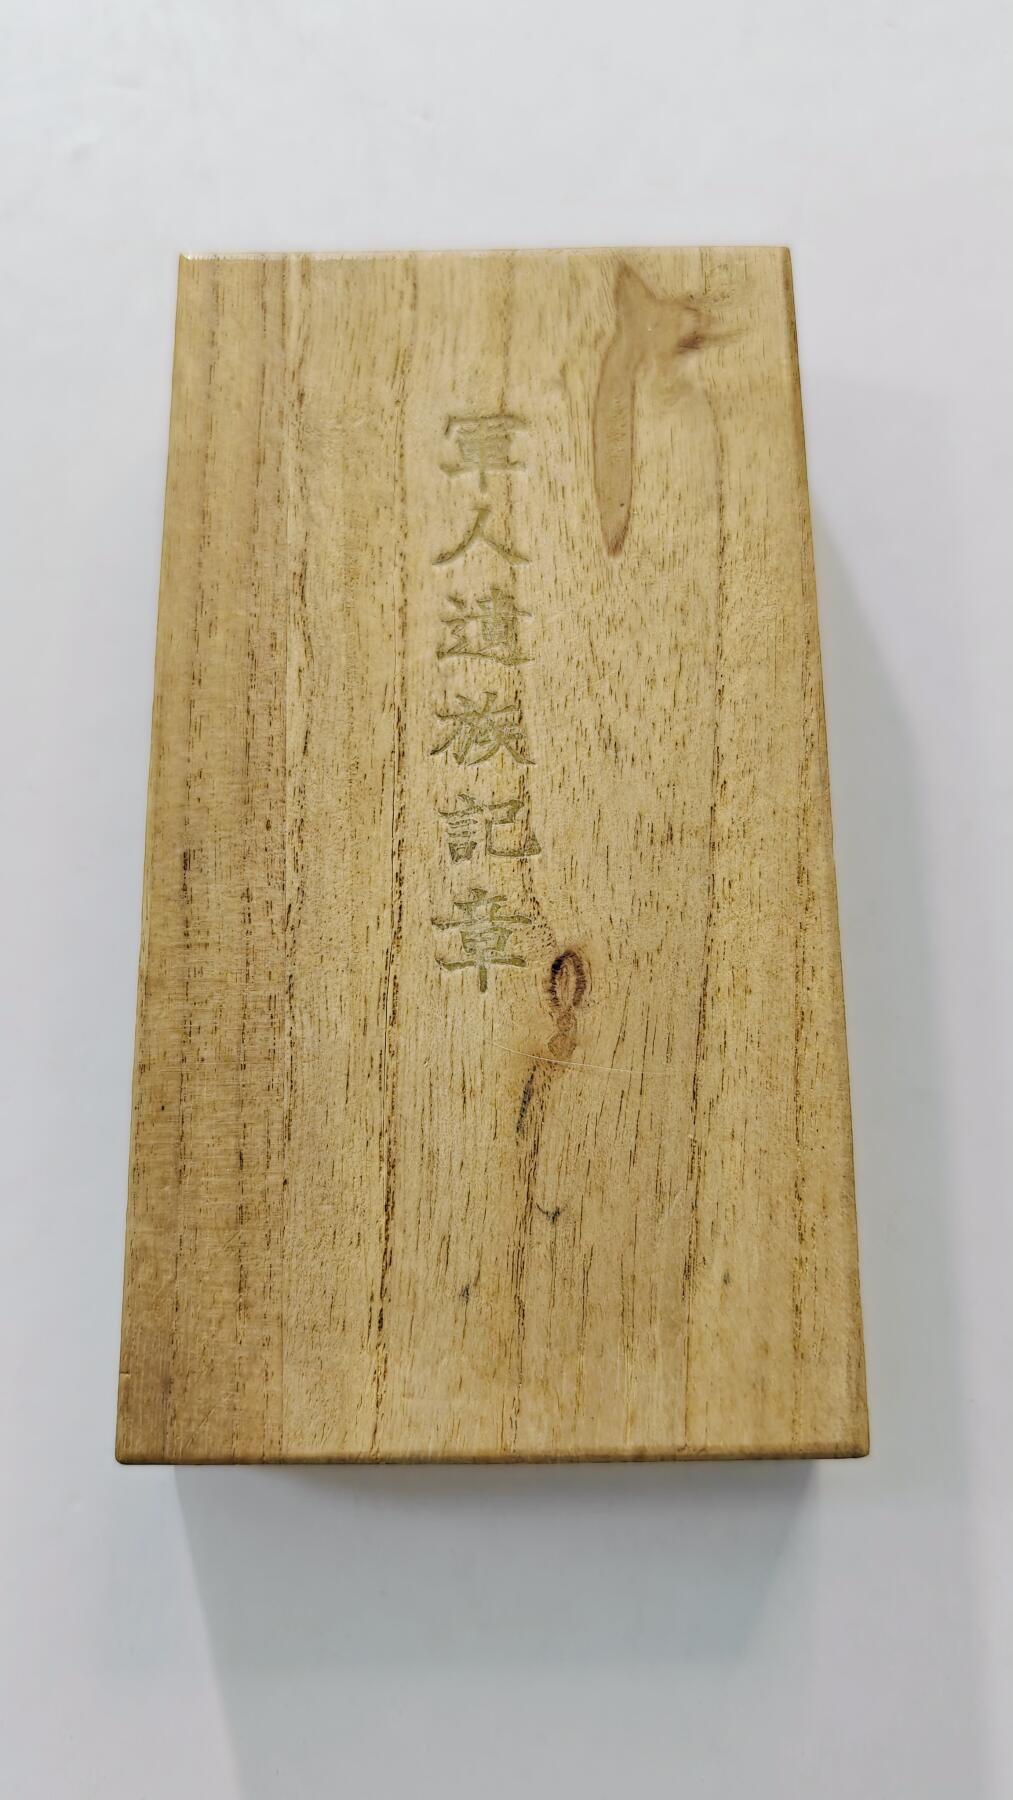 軍人遺族記章